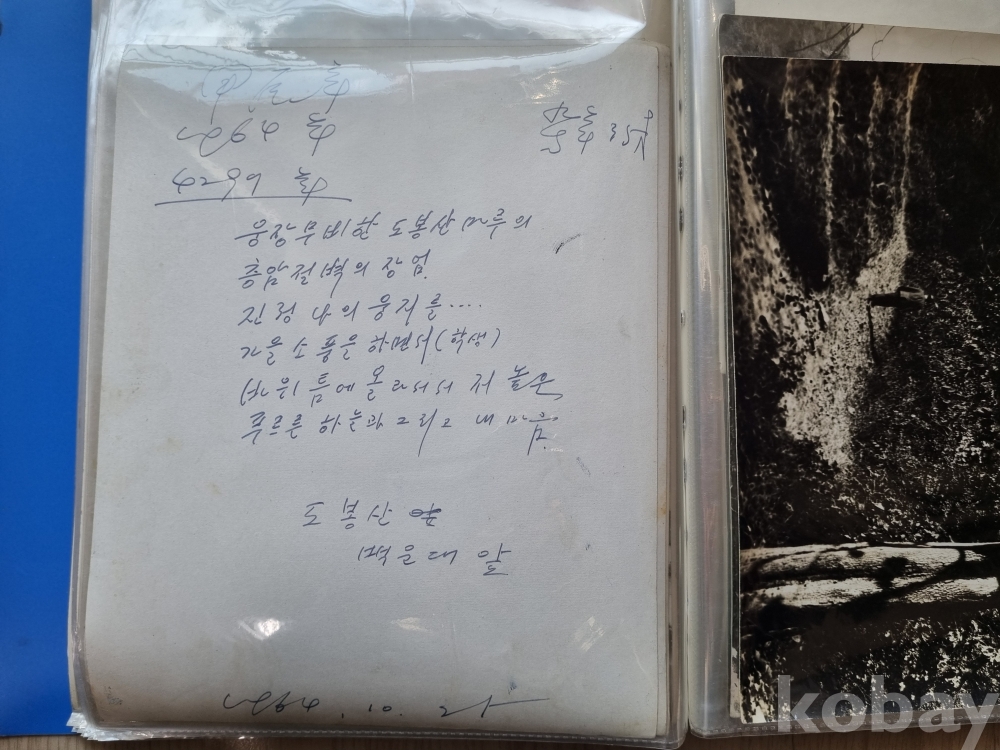 1964 年
4297 年
웅장무비한 도봉산마루의
층암절벽의 장엄.
진정 나의 웅지를....
가을 소풍을 하면서(학생)
바위 틈에 올라서서 저 높은
푸르른 하늘과 그리고 내 마음.
도봉산
백운대 앞
1964. 10.
kobay